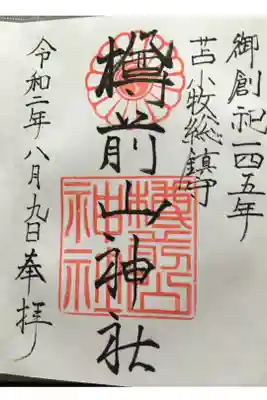 御創祀一四五年
苫小牧総鎮守
樽前山神社
令和二年八月九日奉拝
樽前山神社